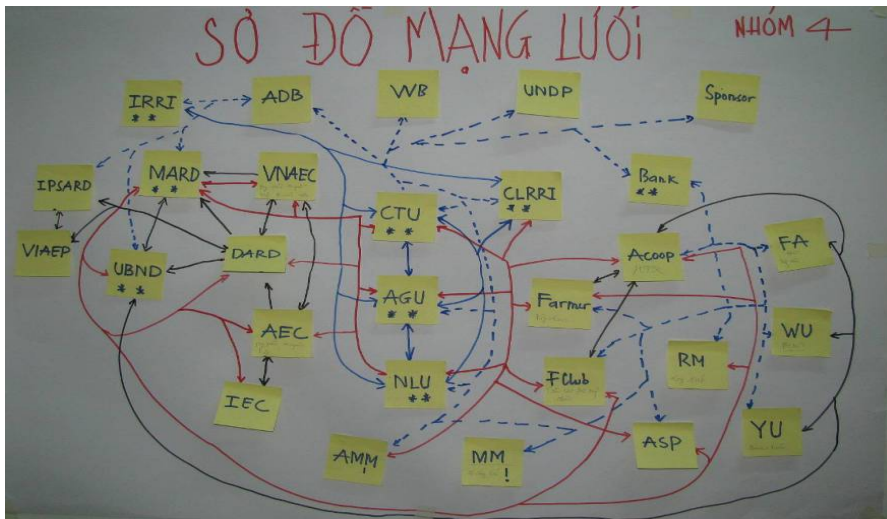 SƠ ĐỒ MẠNG LƯỚI
NHÓM 4
IRRI
* *
ADB
WB
UNDP
Sponsor
IPSARD
MARD
* *
VNAEC
CTU
* *
CLRRI
* *
Bank
* *
VIAEP
UBND
* *
DARD
AGU
* *
Acoop
FA
Farmer
AEC
NLU
* *
FClub
RM
WU
IEC
AMM
!
MM
!
ASP
YU